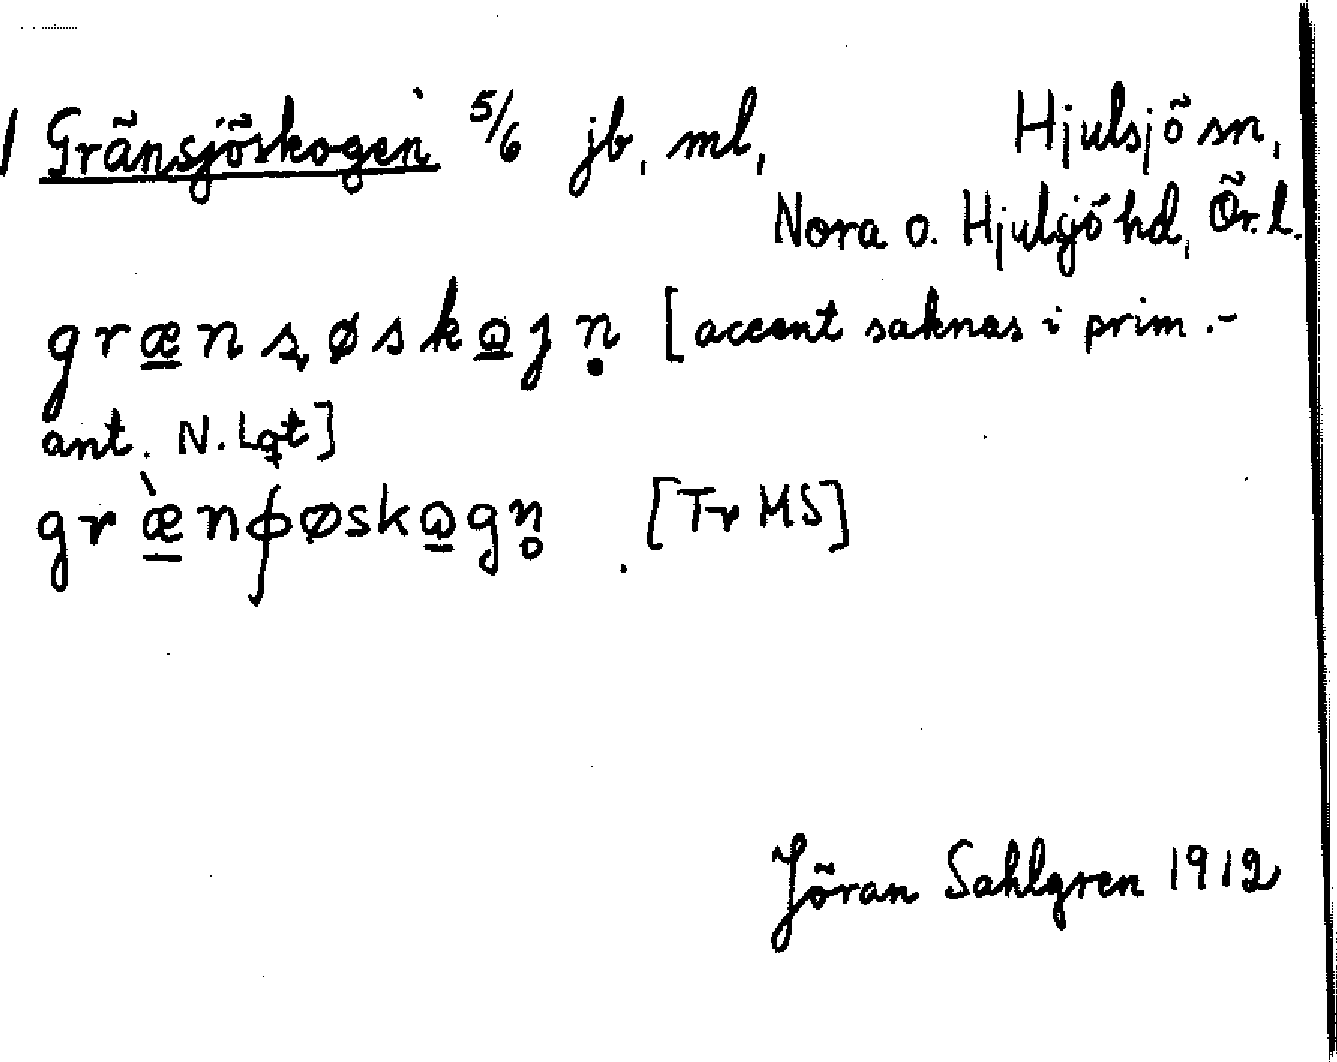 Gränsjöskogen 5/6 jb, ml, Hjulsjö sn,
Nora o. Hjulsjö hd, Ör. l.
græ̲nʂøskɷ̲ʒṇ [accent saknas i prim.-
ant. N. Lqt]
græ̲̀nꞩøskɷ̲gn̥ [Tr MS]
Jöran Sahlgren 1912